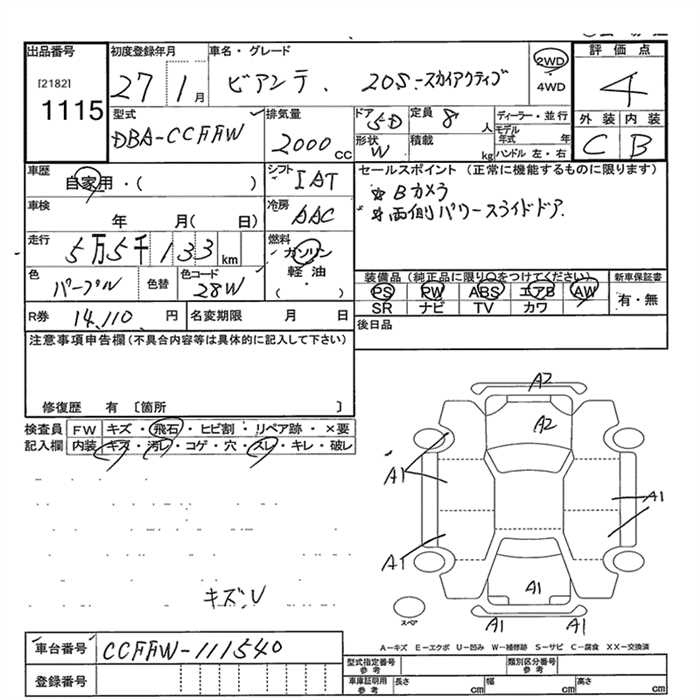 出品番号
[2182]
1115
初度登録年月
27 1月
車名・グレード
ビアンテ. 20S-スカイアクティブ
2WD
4WD
評価点
4
外装 内装
C B
型式
DBA-CCFFW
排気量
2000cc
ドア
5D
形状
W
定員
8人
積載
kg
ディーラー・並行
モデル年式 年
ハンドル 左・右
車歴
自家用・( )
シフト
IAT
車検
年 月( 日)
冷房
AAC
走行
5万5千133km
燃料
ガソリン
軽油
( )
色
パープル
色替
色コード
28W
R券
14,110.円
名変期限
月 日
セールスポイント (正常に機能するものに限ります)
☆Bカメラ
☆両側パワースライドドア.
装備品(純正品に限り○をつけてください)
PS PW ABS エアB AW
SR ナビ TV カワ
新車保証書
有・無
後日品
注意事項申告欄(不具合内容等は具体的に記入して下さい)
修復歴 有 〔箇所 〕
検査員 FW キズ・飛石・ヒビ割・リペア跡・×要
記入欄 内装 キズ・汚レ・コゲ・穴・スレ・キレ・破レ
キズ、U
A2
A2
A1
A1
A1
A1
A1 A1
スペア
A-キズ E-エクボ U-凹み W-補修跡 S-サビ C-腐食 XX-交換済
車台番号
CCFFW-111540
登録番号
型式指定番号 参考
類別区分番号 参考
車庫証明用 参考
長さ cm 幅 cm 高さ cm